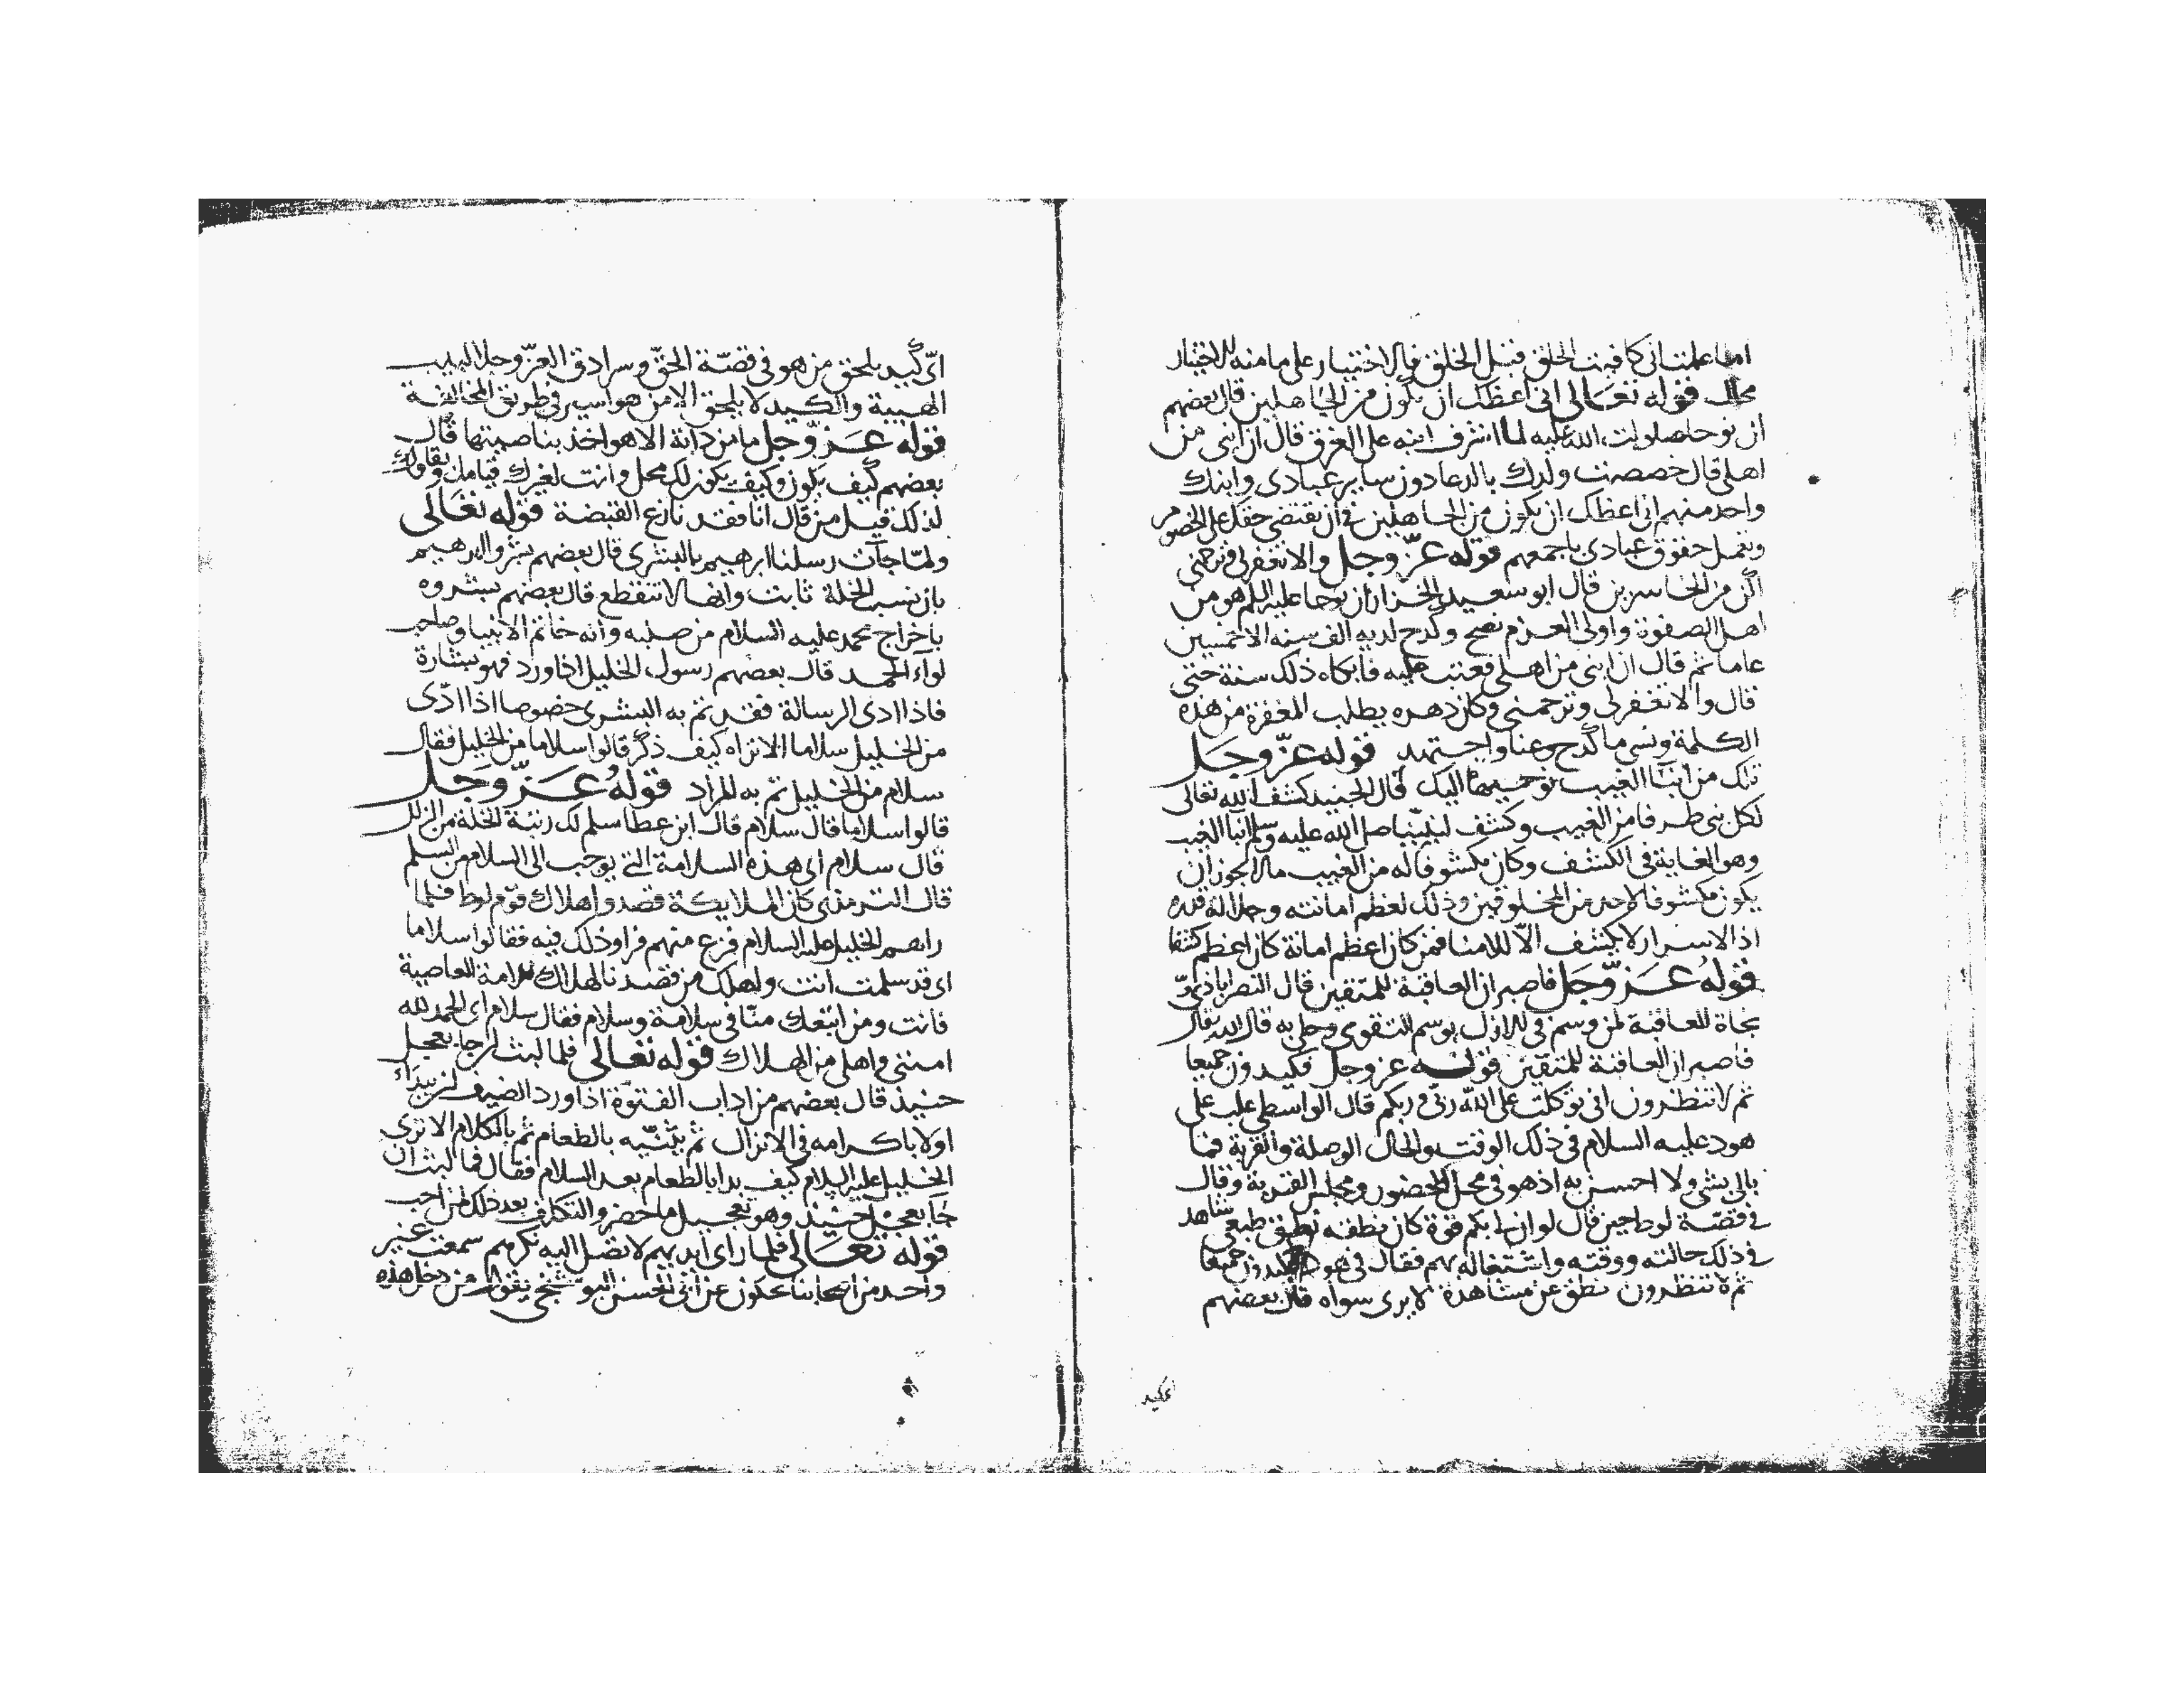 اما علمت انى كافيت الخلق قبل الخلق فالاختيار على ما منه للاختيار
محال قوله تعالى انى اعظك ان تكون من الجاهلين قال بعضهم
ان نوحا صلوات الله عليه لما اشرف ابنه على الغرق قال ان ابنى من
اهلى قال خصصت ولدك بالدعا دون ساير عبادى وابنك
واحد منهم انى اعظك ان تكون من الجاهلين فى ان تقتضى حقك على الخصوص
وتهمل حقوق عبادى باجمعهم قوله عز وجل والا تغفر لى وترحمنى
اكن من الخاسرين قال ابو سعيد الخزاز ان نوحا عليه السلم هو من
اهل الصفوة واولى العزم نصح وكدح لديه الف سنه الا خمسين
عاما ثم قال ان ابنى من اهلى فعتب عليه فابكاه ذلك سنة حتى
قال والا تغفر لى وترحمنى وكان دهره يطلب المغفرة من هذه
الكلمة ونسى ما كدح وعنا واجتهد قوله عز وجل
تلك من انبا الغيب نوحيها اليك قال الجنيد كشف الله تعالى
لكل نبى طرفا من الغيب وكشف لنبينا صلى الله عليه وسلم انبا الغيب
وهو الغاية فى الكشف وكان مكشوفا له من الغيب ما لا يجوز ان
يكون مكشوفا لاحد من المخلوقين وذلك لعظم امانته وجلالة قدره
اذ الاسرار لا يكشف الا للامنا فمن كان اعظم امانة كان اعظم كشفا
قوله عز وجل فاصبر ان العاقبة للمتقين قال النصراباذى
نجاة العاقبة لمن وسم فى الازل بوسم التقوى وحلى به قال الله تعالى
فاصبر ان العاقبة للمتقين قوله عز وجل فكيدون جميعا
ثم لا تنظرون انى توكلت على الله ربى وربكم قال الواسطى غلب على
هود عليه السلام فى ذلك الوقت والحال الوصلة والقربة فما
بالى بشى ولا احسن به اذ هو فى محل الحضور ومجلس القربة وقال
فى قصة لوط حين قال لو ان لى بكم قوة كان نطقه نطق طبعى شاهد
فى ذلك حالته ووقته واشتغاله بهم فقال فى هود فكيدون جميعا
ثم لا تنظرون نطق عن مشاهدة لا يرى سواه قال بعضهم
اى كيد يلحق من هو فى قصة الحق وسرادق العز وجلابيب
الهيبة والكيد لا يلحق الا من هو اسير فى طريق المخالفة
قوله عز وجل ما من دابة الا هو اخذ بناصيتها قال
بعضهم كيف يكون وكيف يكون لك محل وانت لغيرك قيامك وبقاوك
لذلك قيل من قال انا فقد نازع القبضة قوله تعالى
ولما جات رسلنا ابرهيم بالبشرى قال بعضهم بشروا ابرهيم
بان نسب الخلة ثابت وانها لا تنقطع قال بعضهم بشروه
باخراج محمد عليه السلام من صلبه وانه خاتم الانبيا وصاحب
لوآء الحمد قال بعضهم رسول الخليل اذا ورد فهو بشارة
فاذا ادى الرسالة فقد تم به البشرى خصوصا اذا ادى
من الخليل سلاما الا تراه كيف ذكر قالوا سلاما من الخليل فقال
سلام من الخليل تم به المراد قوله عز وجل
قالوا سلاما قال سلام قال ابن عطا سلم لك رتبة الخلة من الزلل
قال سلام اى هذه السلامة التى يوجب الى السلام من السلم
قال الترمذى كان الملايكة قصدوا اهلاك قوم لوط فلما
راهم الخليل عليه السلام فزع منهم فراوا ذلك فيه فقالوا سلاما
اى قد سلمت انت واهلك من قصدنا لهلاك الامة العاصية
فانت ومن اتبعك منا فى سلامة وسلام فقال سلام اى الحمد لله
امننى واهلى من الهلاك قوله تعالى فلما لبث ان جا بعجل
حنيذ قال بعضهم من اداب الفتوة اذا ورد الضيف ان يبدأ
اولا باكرامه فى الانزال ثم يثنيه بالطعام ثم بالكلام الا ترى
الخليل عليه السلام كيف بدا بالطعام بعد السلام فقال فما لبث ان
جا بعجل حنيذ وهو تعجيل ما حضر والتكلف بعد ذلك لمن احب
قوله تعالى فلما راى ايديهم لا تصل اليه نكرهم سمعت غير
واحد من اصحابنا يحكون عن ابى الحسن البوشنجى يقول من دخل هذه